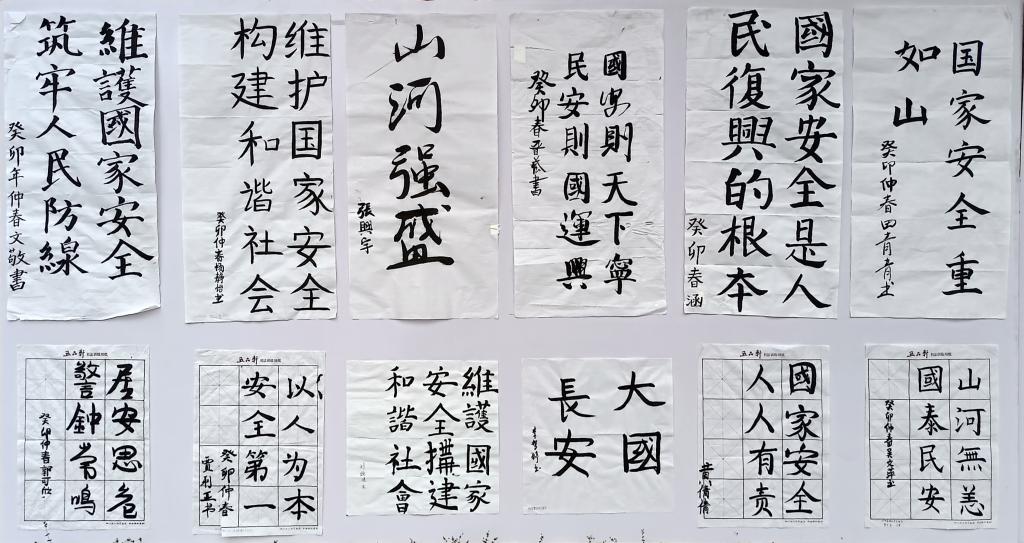 維護國家安全
筑牢人民防線
癸卯年仲春文敬書
维护国家安全
构建和谐社会
癸卯仲春杨婷怡书
山河强盛
張興宇
國安則天下寧
民安則國運興
癸卯春晋藏書
國家安全是人
民復興的根本
癸卯春涵
国家安全重
如山
癸卯仲春田青青书
居安思危
警鐘常鳴
癸卯仲春郭可欣
以人为本
安全第一
癸卯仲春
贾利亚书
維護國家
安全構建
和諧社會
大國
長安
國家安全
人人有责
黄倩倩
山河無恙
國泰民安
癸卯仲春吴文萍书